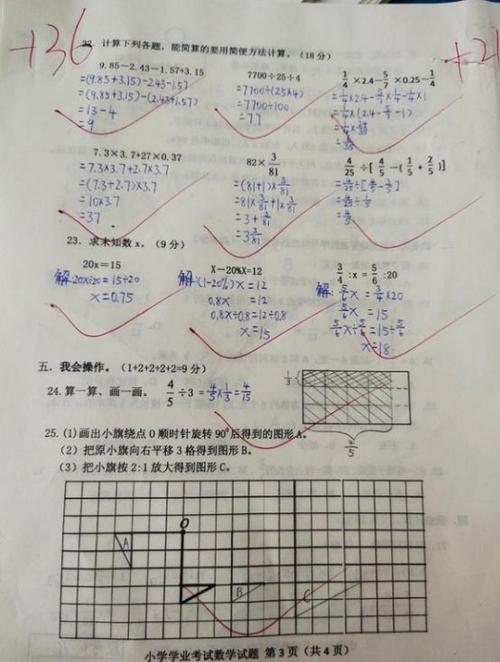 +36
22. 计算下列各题，能简算的要用简便方法计算。(18分)
9.85－2.43－1.57+3.15
=(9.85+3.15)-2.43-1.57
=(9.85+3.15)-(2.43+1.57)
=13-4
=9
7700÷25÷4
=7700÷(25×4)
=7700÷100
=77
1/4 ×2.4－5/7 ×0.25－1/4
7.3×3.7+27×0.37
=7.3×3.7+2.7×3.7
=(7.3+2.7)×3.7
=10×3.7
=37
82× 3/81
=(81+1)×3/81
=81×3/81+1×3/81
=3+3/81
=3 3/81
4/25 ÷[ 4/5 －( 1/5 + 2/5 )]
23. 求未知数 x。(9分)
20x＝15
解:20x÷20=15÷20
x=0.75
X－20%X=12
解:(1-20%)x=12
0.8x=12
0.8x÷0.8=12÷0.8
x=15
3/4 :x＝5/6 :20
解:5/6 x=3/4×20
5/6 x=15
5/6 x÷5/6=15÷5/6
x=18
五. 我会操作。(1+2+2+2+2=9分)
24. 算一算、画一画。 4/5 ÷3 =4/5×1/3=4/15
1/3
4/5
25. (1)画出小旗绕点 O 顺时针旋转 90°后得到的图形A。
(2) 把原小旗向右平移 3 格得到图形 B。
(3) 把小旗按 2:1 放大得到图形 C。
O
A
B
C
小学学业考试数学试题 第3页（共4页）